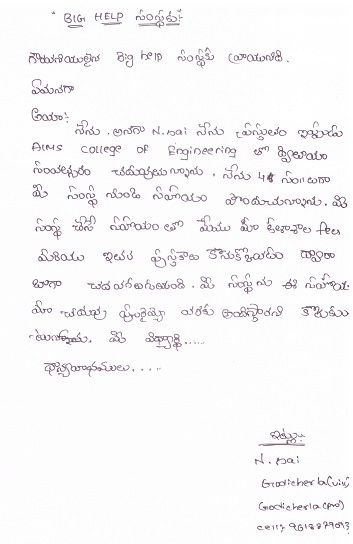 " BIG HELP సంస్థకు:-
గౌరవనీయులైన Big help సంస్థకు వ్రాయునది.
ఏమనగా
అయా:
నేను. అనగా N.Sai నేను ప్రస్తుతం
AIMS College of Engineering లో ద్వితీయ
సంవత్సరం చదువుతున్నాను. నేను 4 సం॥లుగా
మీ సంస్థ నుండి సహాయం పొందుచున్నాను. మీ
సంస్థ చేసే సహాయం తో మేము మా కళాశాల fees
మరియు ఇతర పుస్తకాలు కొనుక్కోవడం ద్వారా
బాగా చదవగలుగుతుంది. మీ సంస్థ ను ఈ సహాయం
మా చదువు పూర్తయ్యే వరకు అందిస్తారని కోరుకుం
-టున్నాను. మీ విద్యార్థి.....
ధన్యవాదములు.....
ఇట్లు:-
N. Sai
Godicherla(vill)
Godicherla(po)